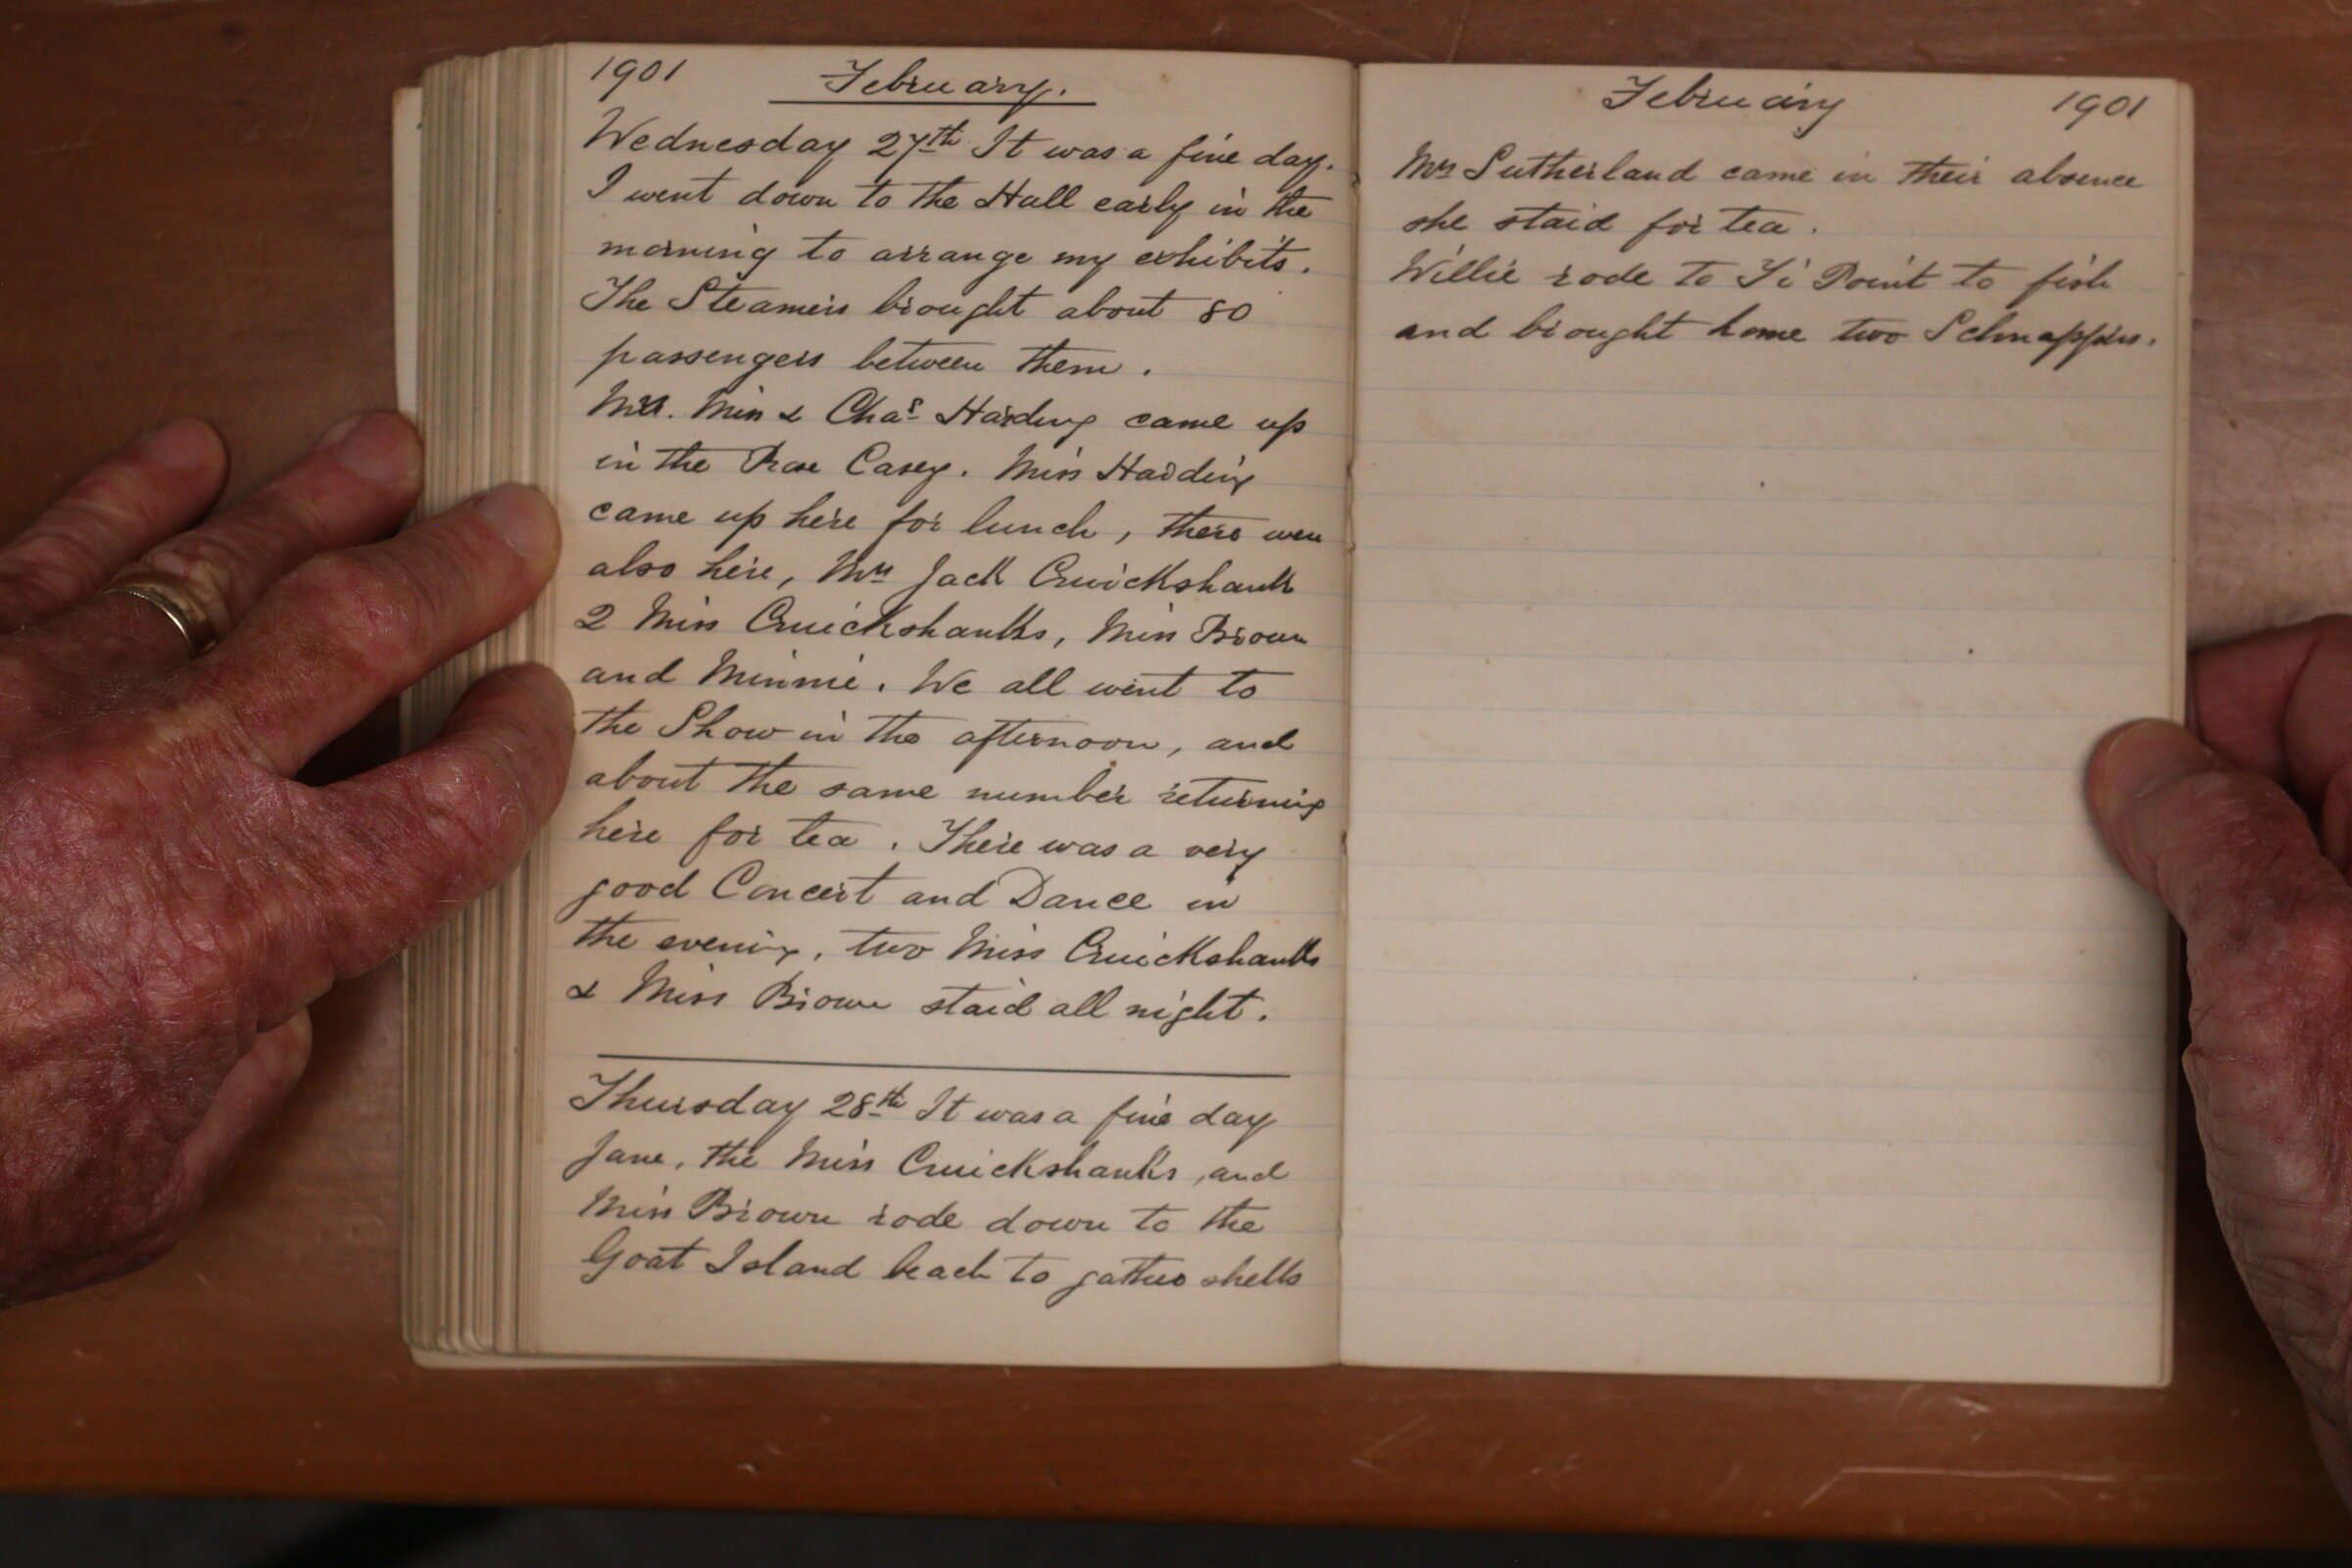 1901 February.
Wednesday 27th It was a fine day.
I went down to the Hall early in the
morning to arrange my exhibits.
The Steamers brought about 80
passengers between them.
Miss & Chas Harding came up
in the Rose Casey. Miss Harding
came up here for lunch, there were
also here, Mrs Jack Cruickshank
2 Miss Cruickshanks, Miss Brown
and Minnie. We all went to
the Show in the afternoon, and
about the same number returning
here for tea. There was a very
good Concert and Dance in
the evening, two Miss Cruickshanks
& Miss Brown staid all night.
Thursday 28th It was a fine day
Jane, the Miss Cruickshanks, and
Miss Brown rode down to the
Goat Island beach to gather shells
February 1901
Mrs Sutherland came in their absence
she staid for tea.
Willie rode to Ti Point to fish
and brought home two Schnappers.